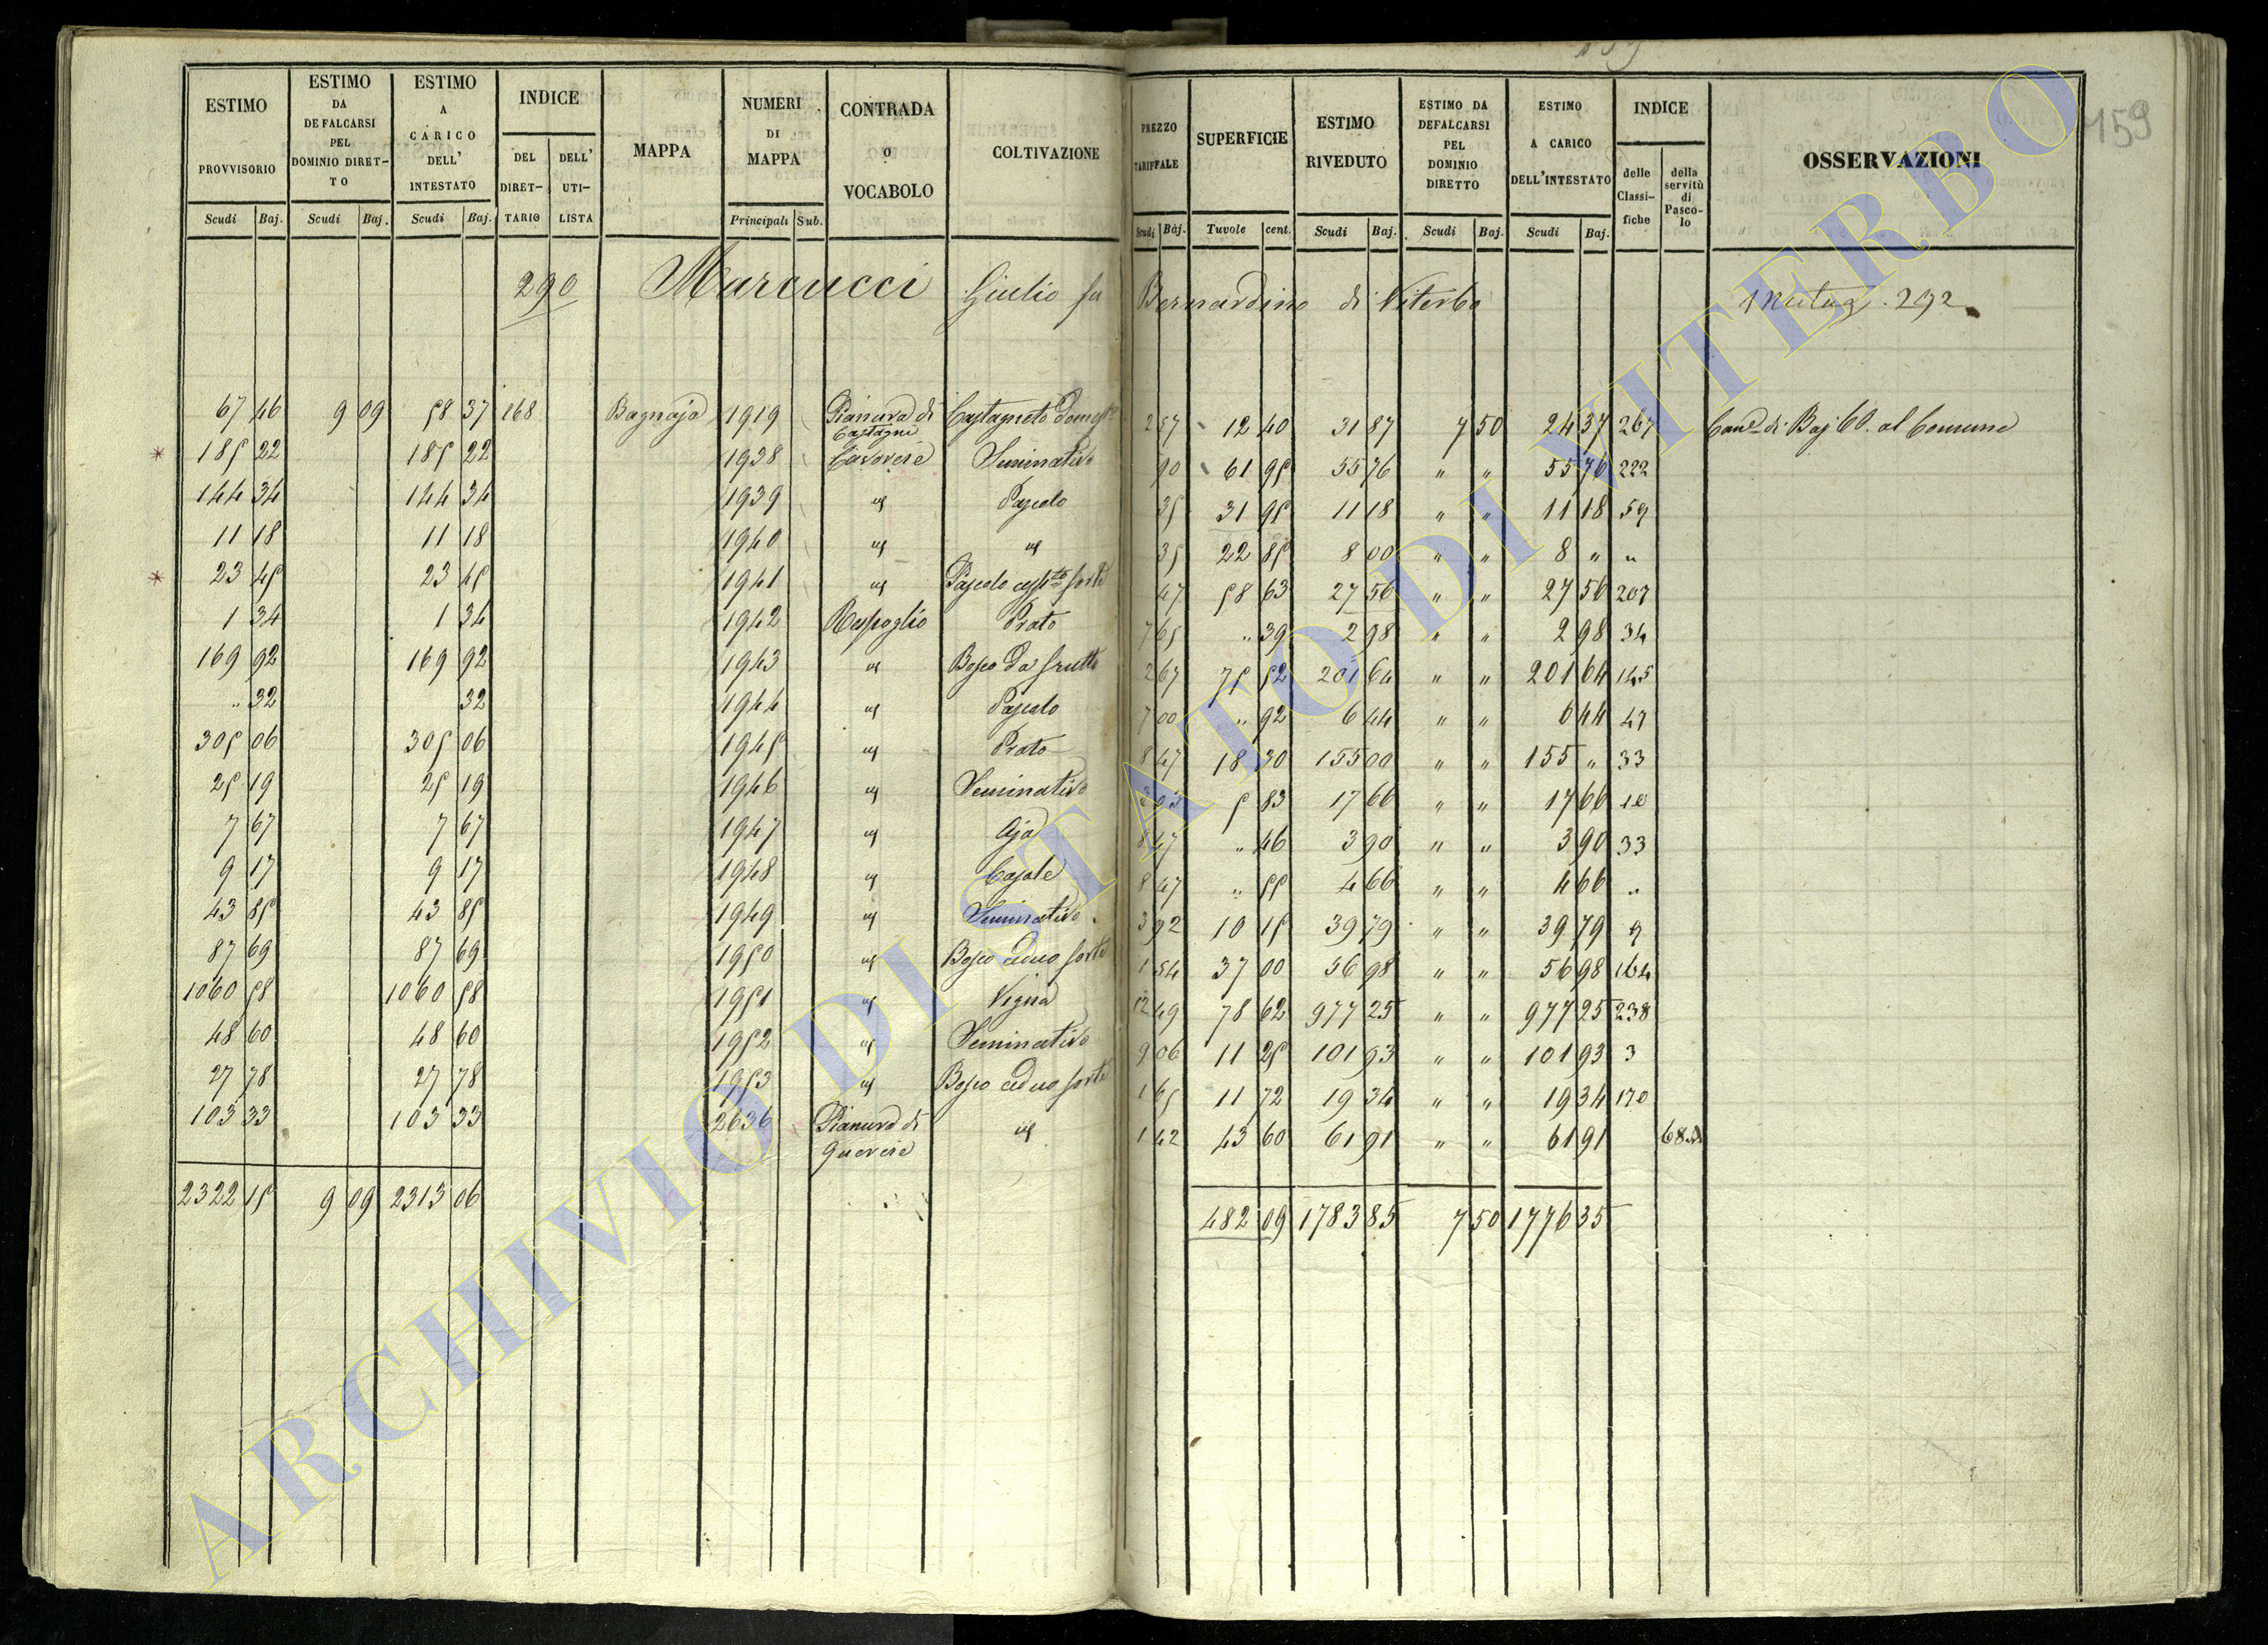 ESTIMO PROVVISORIO | ESTIMO DA DEFALCARSI PEL DOMINIO DIRET-TO | ESTIMO A CARICO DELL' INTESTATO | INDICE DEL DIRET-TARIO | DELL' UTI-LISTA | MAPPA | NUMERI DI MAPPA | CONTRADA O VOCABOLO | COLTIVAZIONE | PREZZO TARIFFALE | SUPERFICIE | ESTIMO RIVEDUTO | ESTIMO DA DEFALCARSI PEL DOMINIO DIRETTO | ESTIMO A CARICO DELL'INTESTATO | INDICE delle Classi-fiche | della servitù di Pasco-lo | OSSERVAZIONI
Scudi Baj. | Scudi Baj. | Scudi Baj. | Principali Sub. | Scudi Baj. | Tavole cent. | Scudi Baj. | Scudi Baj. | Scudi Baj.
159
290 Marcucci Giulio fu Bernardino di Viterbo 292
67 46 | 9 09 | 58 37 | 168 | Bagnaja | 1919 | Pianura di Castagni | Castagneto | 2 57 | 12 40 | 31 87 | 7 50 | 24 37 | 267 | di Baj 60. al Comune
185 22 | 185 22 | 1938 | Seminativo | 90 | 61 95 | 55 76 | " " | 55 76 | 222
144 34 | 144 34 | 1939 | Pascolo | 35 | 31 95 | 11 18 | " " | 11 18 | 59
11 18 | 11 18 | 1940 | 35 | 22 85 | 8 00 | " " | 8 " | "
23 45 | 23 45 | 1941 | Pascolo forte | 47 | 58 63 | 27 56 | " " | 27 56 | 207
1 34 | 1 34 | 1942 | Raspoglio | Prato | 7 65 | " 39 | 2 98 | " " | 2 98 | 34
169 92 | 169 92 | 1943 | Bosco da frutto | 2 67 | 75 52 | 201 64 | " " | 201 64 | 145
" 32 | 32 | 1944 | Pascolo | 7 00 | " 92 | 6 44 | " " | 6 44 | 47
305 06 | 305 06 | 1945 | Prato | 8 47 | 18 30 | 155 00 | " " | 155 " | 33
25 19 | 25 19 | 1946 | Seminativo | 3 03 | 5 83 | 17 66 | " " | 17 66
7 67 | 7 67 | 1947 | Aja | 8 47 | " 46 | 3 90 | " " | 3 90 | 33
9 17 | 9 17 | 1948 | Casale | 8 47 | " 55 | 4 66 | " " | 4 66 | "
43 85 | 43 85 | 1949 | Seminativo | 3 92 | 10 15 | 39 79 | " " | 39 79 | 9
87 69 | 87 69 | 1950 | Bosco ceduo forte | 1 54 | 37 00 | 56 98 | " " | 56 98 | 164
1060 58 | 1060 58 | 1951 | Vigna | 12 49 | 78 62 | 977 25 | " " | 977 25 | 238
48 60 | 48 60 | 1952 | Seminativo | 9 06 | 11 25 | 101 93 | " " | 101 93 | 3
27 78 | 27 78 | 1953 | Bosco ceduo forte | 1 65 | 11 72 | 19 34 | " " | 19 34 | 170
103 33 | 103 33 | 2636 | Pianura di | 1 42 | 43 60 | 61 91 | " " | 61 91
2322 15 | 9 09 | 2313 06 | 482 09 | 1783 85 | 7 50 | 1776 35
ARCHIVIO DI STATO DI VITERBO